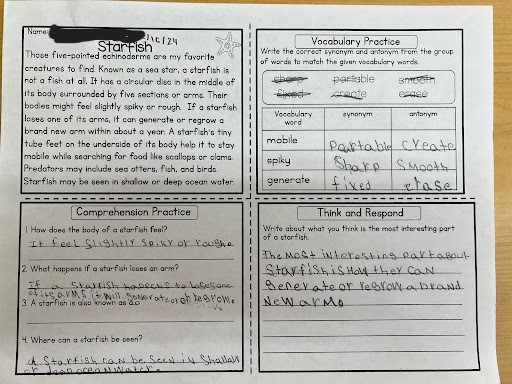 Name
/16/24
Starfish
Those five-pointed echinoderms are my favorite
creatures to find. Known as sea star, a starfish is
not a fish at all. It has a circular disc in the middle of
its body surrounded by five sections or arms. Their
bodies might feel slightly spiky or rough. If a starfish
loses one of its arms, it can generate or regrow a
brand new arm within about a year. A starfish's tiny
tube feet on the underside of its body help it to stay
mobile while searching for food like scallops or clams.
Predators may include sea otters, fish, and birds.
Starfish may be seen in shallow or deep ocean water.
Vocabulary Practice
Write the correct synonym and antonym from the group
of words to match the given vocabulary words.
sharp portable smooth
fixed create erase
Vocabulary word synonym antonym
mobile partable create
spiky sharp smooth
generate fixed erase
Comprehension Practice
1. How does the body of a starfish feel?
It feel slightly spiky or roughe
2. What happens if a starfish loses an arm?
If a starfish happens to loses one
of its arms it will generate or regrow.
3. A starfish is also known as a:
4. Where can a starfish be seen?
A starfish can be seen in shallow
or deep ocean water.
Think and Respond
Write about what you think is the most interesting part
of a starfish.
The most interesting part about
starfish is how they can
generate or regrow a brand
new arm.